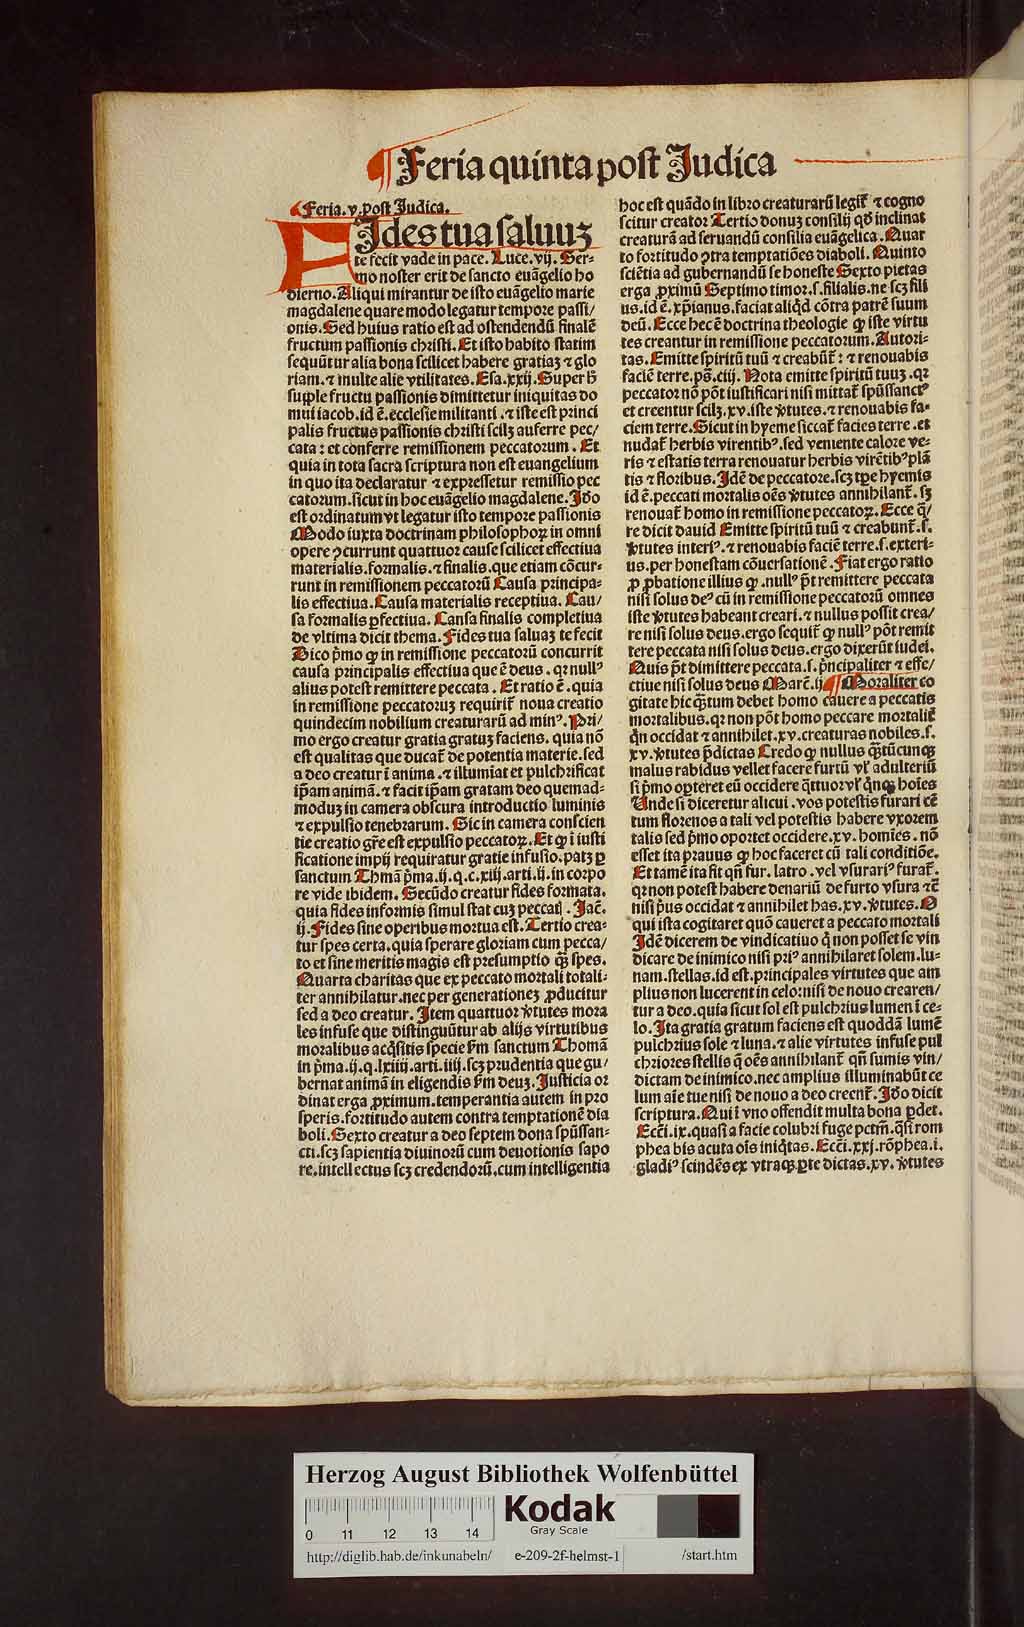 ¶ Feria quinta post Judica
¶ Feria. v. post Judica.
FIdes tua saluuʒ
te fecit vade in pace. Luce. vij. Ser-
mo noster erit de sancto euāgelio ho
dierno. Aliqui mirantur de isto euāgelio marie
magdalene quare modo legatur tempore passi/
onis. Sed huius ratio est ad ostendendū finalē
fructum passionis christi. Et isto habito statim
sequūtur alia bona scilicet habere gratiaʒ ⁊ glo
riam. ⁊ multe alie vtilitates. Esa. xxij. Super h̄
supple fructu passionis dimittetur iniquitas do
mui iacob. id ē. ecclesie militanti. ⁊ iste est princi
palis fructus passionis christi scilʒ auferre pec/
cata: et conferre remissionem peccatorum. Et
quia in tota sacra scriptura non est euangelium
in quo ita declaratur ⁊ expressetur remissio pec
catorum. sicut in hoc euāgelio magdalene. Iđo
est ordinatum vt legatur isto tempore passionis
Modo iuxta doctrinam philosophoꝝ in omni
opere ꝯcurrunt quattuor cause scilicet effectiua
materialis. formalis. ⁊ finalis. que etiam cōcur-
runt in remissionem peccatorū Causa principa-
lis effectiua. Causa materialis receptiua. Cau/
sa formalis ꝑfectiua. Cansa finalis completiua
de vltima dicit thema. Fides tua saluaʒ te fecit
Dico p̄mo ꝙ in remissione peccatorū concurrit
causa principalis effectiua que ē deus. qꝛ nullꝰ
alius potest remittere peccata. Et ratio ē. quia
in remissione peccatoruʒ requirit̄ noua creatio
quindecim nobilium creaturarū ad minꝰ. Pri/
mo ergo creatur gratia gratuʒ faciens. quia nō
est qualitas que ducat̄ de potentia materie. sed
a deo creatur ī anima. ⁊ illumīat et pulchrificat
ip̄am animā. ⁊ facit ip̄am gratam deo quemad-
moduʒ in camera obscura introductio luminis
⁊ expulsio tenebrarum. Sic in camera conscien
tie creatio gr̄e est expulsio peccatoꝝ. Et ꝙ ī iusti
ficatione impij requiratur gratie infusio. patʒ ꝑ
sanctum Thmā p̄ma. ij. q. c. xiij. arti. ij. in corpo
re vide ibidem. Secūdo creatur fides formata.
quia fides informis simul stat cuʒ peccati. Jac̄.
ij. Fides sine operibus mortua est. Tertio crea-
tur spes certa. quia sperare gloriam cum pecca/
to et sine meritis magis est presumptio q̄ʒ spes.
Quarta charitas que ex peccato mortali totali-
ter annihilatur. nec per generationeʒ ꝓducitur
sed a deo creatur. Item quattuor v̄tutes mora
les infuse que distinguūtur ab alijs virtutibus
moralibus acq̄sitis specie ẜm sanctum Thomā
in p̄ma. ij. q. lxiiij. arti. iiij. scʒ prudentia que gu/
bernat animā in eligendis ẜm deuʒ. Justicia or
dinat erga ꝓximum. temperantia autem in pro
speris. fortitudo autem contra temptationē dia
boli. Sexto creatur a deo septem dona spūssan-
cti. scʒ sapientia diuinorū cum deuotionis sapo
re. intellectus scʒ credendorū. cum intelligentia
hoc est quādo in libro creaturarū legit̄ ⁊ cogno
scitur creator Tertio donuʒ consilij qđ inclinat
creaturā ad seruandū consilia euāgelica. Quar
to fortitudo ꝯtra temptatiōes diaboli. Quinto
sciētia ad gubernandū se honeste Sexto pietas
erga ꝓximū Septimo timor. s. filialis. ne scʒ fili
us. id ē. xp̄ianus. faciat aliq̄d cōtra patrē suum
deū. Ecce hec ē doctrina theologie ꝙ iste virtu
tes creantur in remissione peccatorum. Autori-
tas. Emitte spiritū tuū ⁊ creabūt̄: ⁊ renouabis
faciē terre. ps̄. ciij. Nota emitte spiritū tuuʒ. qꝛ
peccator nō pōt iustificari nisi mittat̄ spūssanctꝰ
et creentur scilʒ. xv. iste v̄tutes. ⁊ renouabis fa-
ciem terre. Sicut in hyeme siccat̄ facies terre. et
nudat̄ herbis virentibꝰ. sed veniente calore ve-
ris ⁊ estatis terra renouatur herbis virētibꝰ plā
tis ⁊ floribus. Idē de peccatore. scʒ tꝑe hyemis
id ē. peccati mortalis oēs v̄tutes annihilant̄. sʒ
renouat̄ homo in remissione peccatoꝝ. Ecce q̄/
re dicit dauid Emitte spiritū tuū ⁊ creabunt̄. s.
v̄tutes interiꝰ. ⁊ renouabis faciē terre. s. exteri-
us. per honestam cōuersationē. Fiat ergo ratio
ꝓ ꝓbatione illius ꝙ. nullꝰ p̄t remittere peccata
nisi solus deꝰ cū in remissione peccatorū omnes
iste v̄tutes habeant creari. ⁊ nullus possit crea/
re nisi solus deus. ergo sequit̄ ꝙ nullꝰ pōt remit
tere peccata nisi solus deus. ergo dixerūt iudei.
Quis p̄t dimittere peccata. s. p̄ncipaliter ⁊ effe/
ctiue nisi solus deus Marc̄. ij ¶ Moraliter co
gitate hic q̄tum debet homo cauere a peccatis
mortalibus. qꝛ non pōt homo peccare mortalit̄
qn̄ occidat ⁊ annihilet. xv. creaturas nobiles. s.
xv. v̄tutes p̄dictas Credo ꝙ nullus q̄tūcunqꝫ
malus rabidus vellet facere furtū vl̄ adulteriū
si p̄mo oꝑteret eū occidere q̄ttuor vl̄ q̄nqꝫ hoīes
Unde si diceretur alicui. vos potestis furari cē
tum florenos a tali vel potestis habere vxorem
talis sed p̄mo oportet occidere. xv. homīes. nō
esset ita prauus ꝙ hoc faceret cū tali conditiōe.
Et tamē ita fit qn̄ fur. latro. vel vsurariꝰ furat̄.
qꝛ non potest habere denariū de furto vsura ⁊c̄
nisi p̄us occidat ⁊ annihilet has. xv. v̄tutes. O
qui ista cogitaret quō caueret a peccato mortali
Idē dicerem de vindicatiuo q̄ non posset se vin
dicare de inimico nisi priꝰ annihilaret solem. lu-
nam. stellas. id est. principales virtutes que am
plius non lucerent in celo: nisi de nouo crearen/
tur a deo. quia sicut sol est pulchrius lumen ī ce-
lo. Ita gratia gratum faciens est quoddā lumē
pulchrius sole ⁊ luna. ⁊ alie virtutes infuse pul
chriores stellis q̄ oēs annihilant̄ qn̄ sumis vin/
dictam de inimico. nec amplius illuminabūt ce
lum aīe tue nisi de nouo a deo creent̄. Iđo dicit
scriptura. Qui ī vno offendit multa bona ꝑdet.
Ecc̄i. ix. quasi a facie colubri fuge pctm̄. q̄si rom
phea bis acuta oīs iniq̄tas. Ecc̄i. xxj. rōphea. i.
gladiꝰ scindēs ex vtraqꝫ ꝑte dictas. xv. v̄tutes
Herzog August Bibliothek Wolfenbüttel
0 11 12 13 14
Kodak
Gray Scale
http://diglib.hab.de/inkunabeln/ e-209-2f-helmst-1 /start.htm